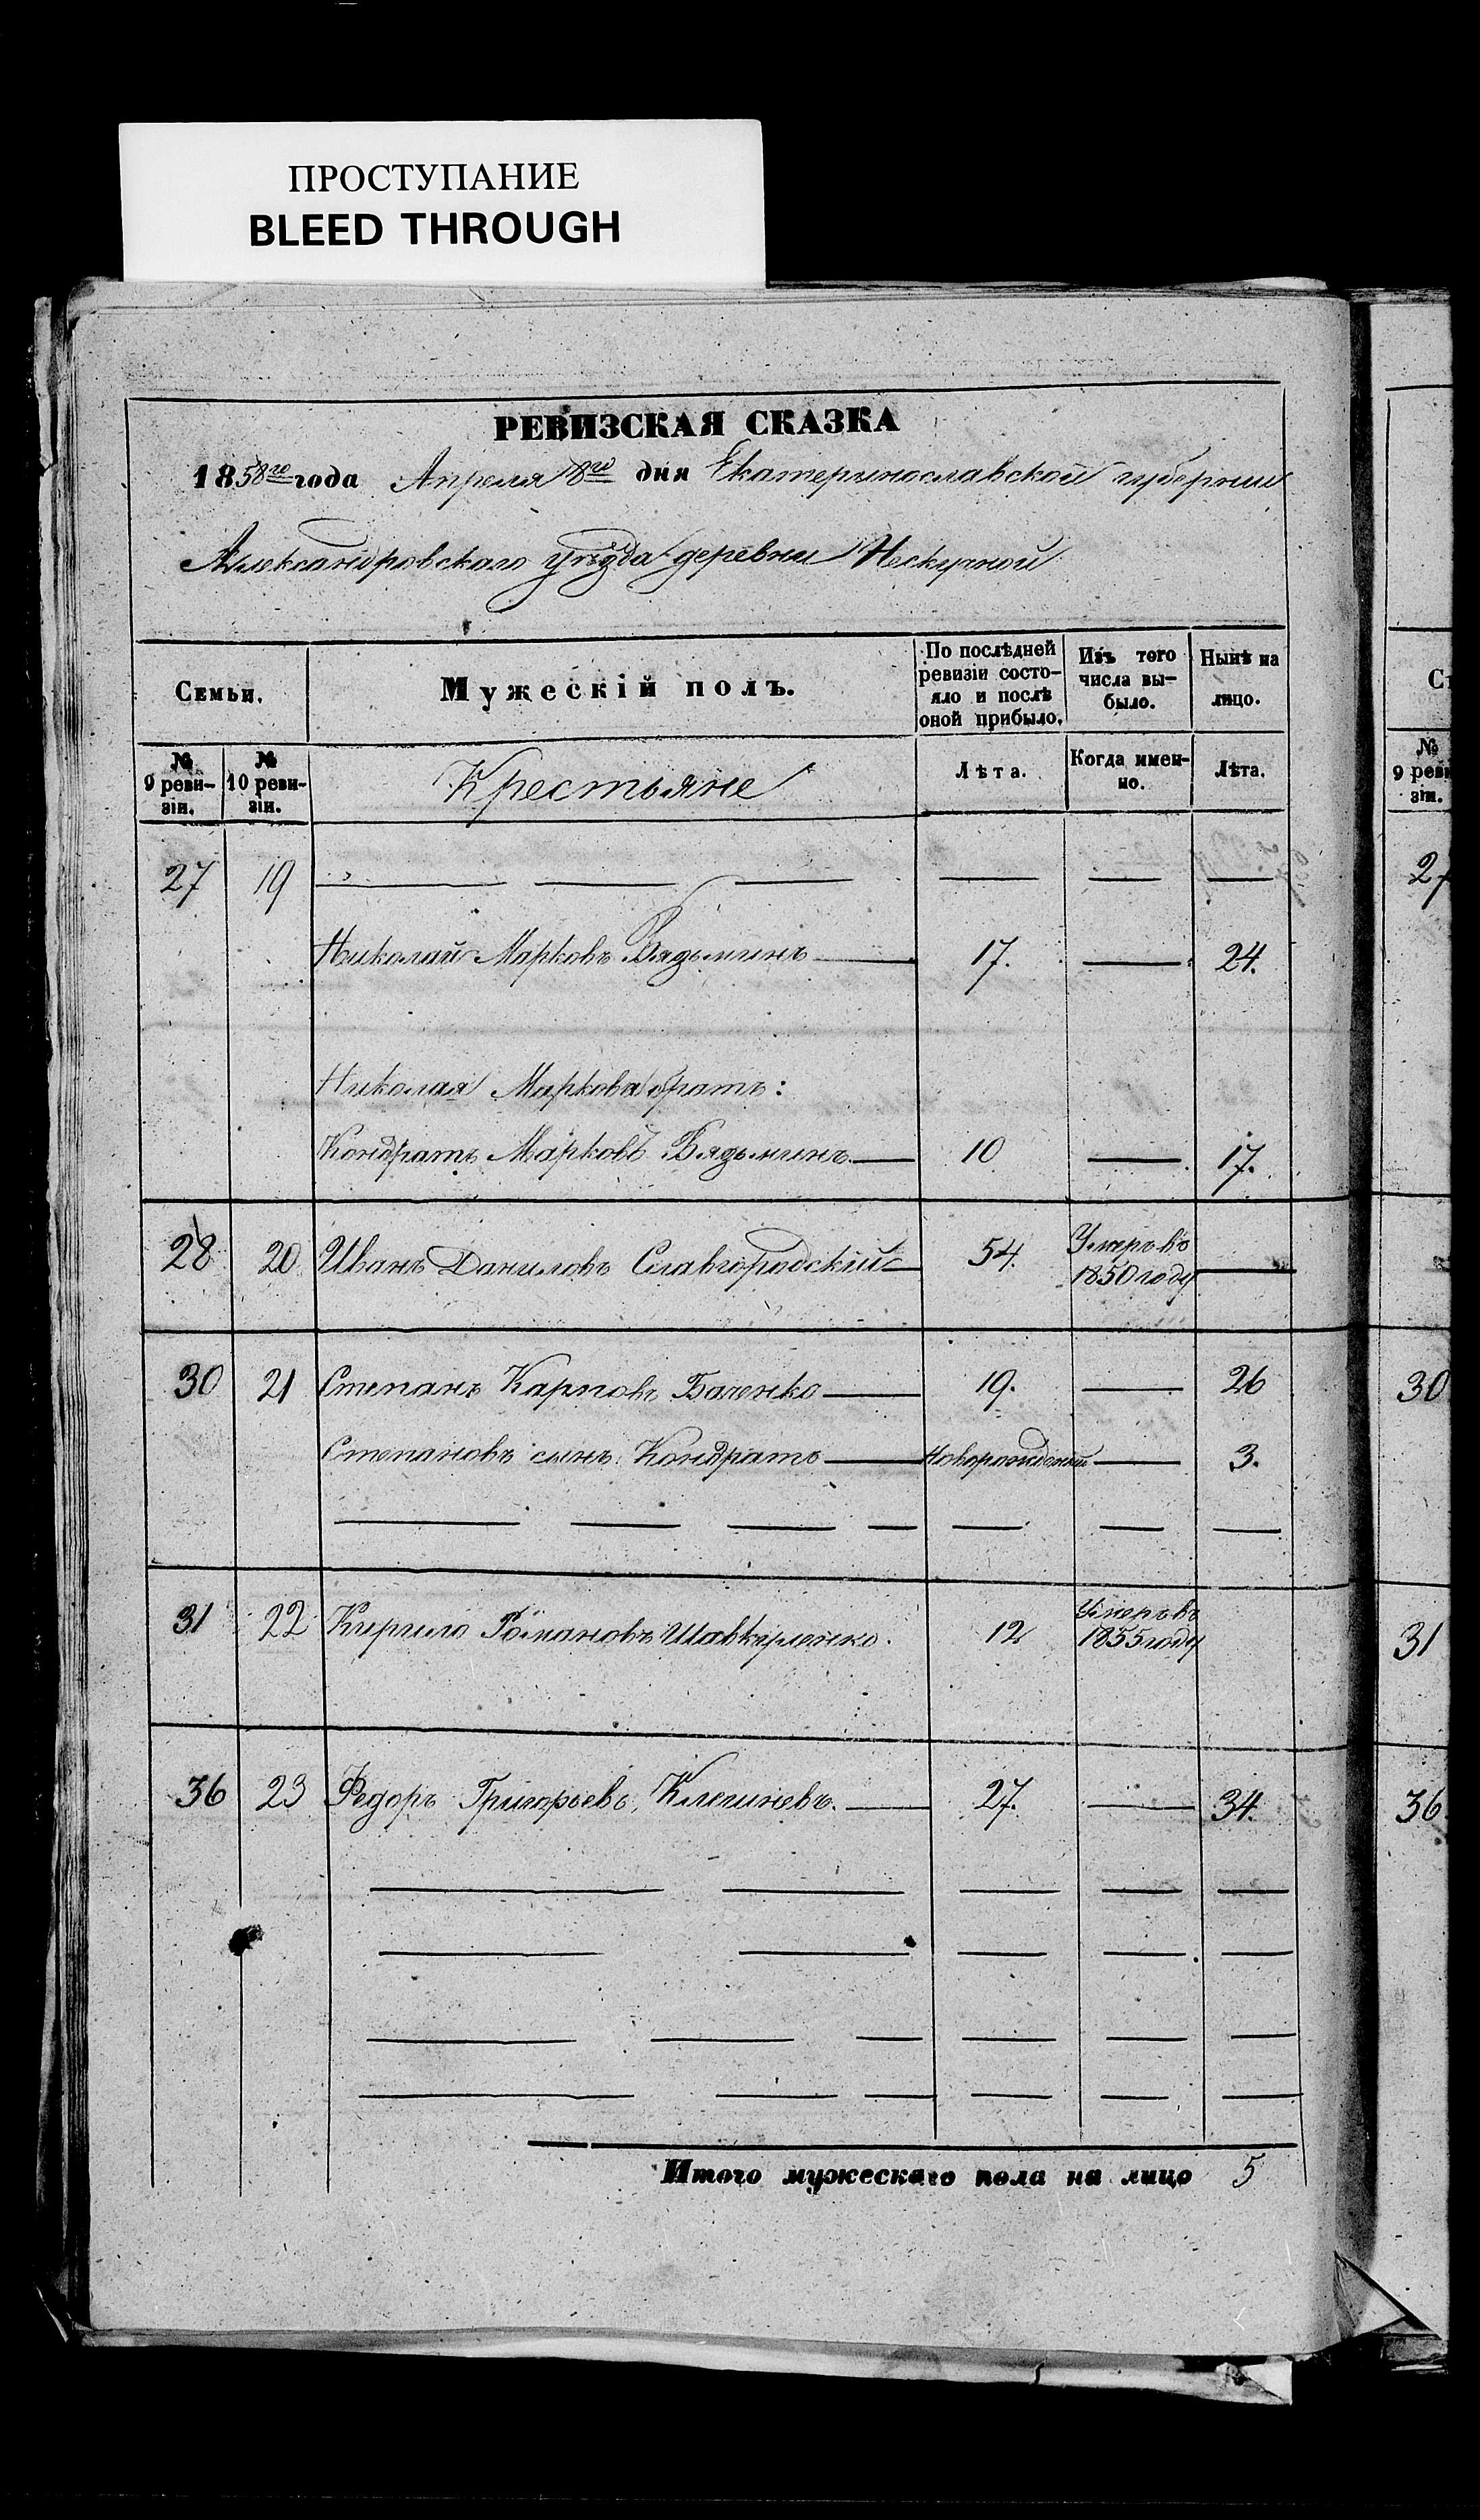 ПРОСТУПАНИЕ
BLEED THROUGH
РЕВИЗСКАЯ СКАЗКА
1858го года Апреля 18го дня Екатеринославской губернии
Александровскаго уѣзда деревни Нескучной
Семьи. Мужескій полъ. По послѣдней ревизіи состо- яло и послѣ оной прибыло. Изъ того числа вы- было. Нынѣ на лицо.
№ 9 реви- зіи. № 10 реви- зіи. Крестьяне Лѣта. Когда имен- но. Лѣта.
27 19
Николай Марковъ 17. 24.
Николая Маркова братъ:
Кондратъ Марковъ 10 17.
28 20 Иванъ Даниловъ Славгородскій 54. Умеръ въ 1850 году
30 21 Степанъ Карповъ Баченко 19. 26
Степановъ сынъ Кондратъ Новорожденый 3.
31 22 Кирило Романовъ 12 Умеръ въ 1855 году
36 23 Федоръ Григорьевъ 27. 34.
Итого мужескаго пола на лицо 5
Ст
№ 9 реви зіи.
27
30
31
36.